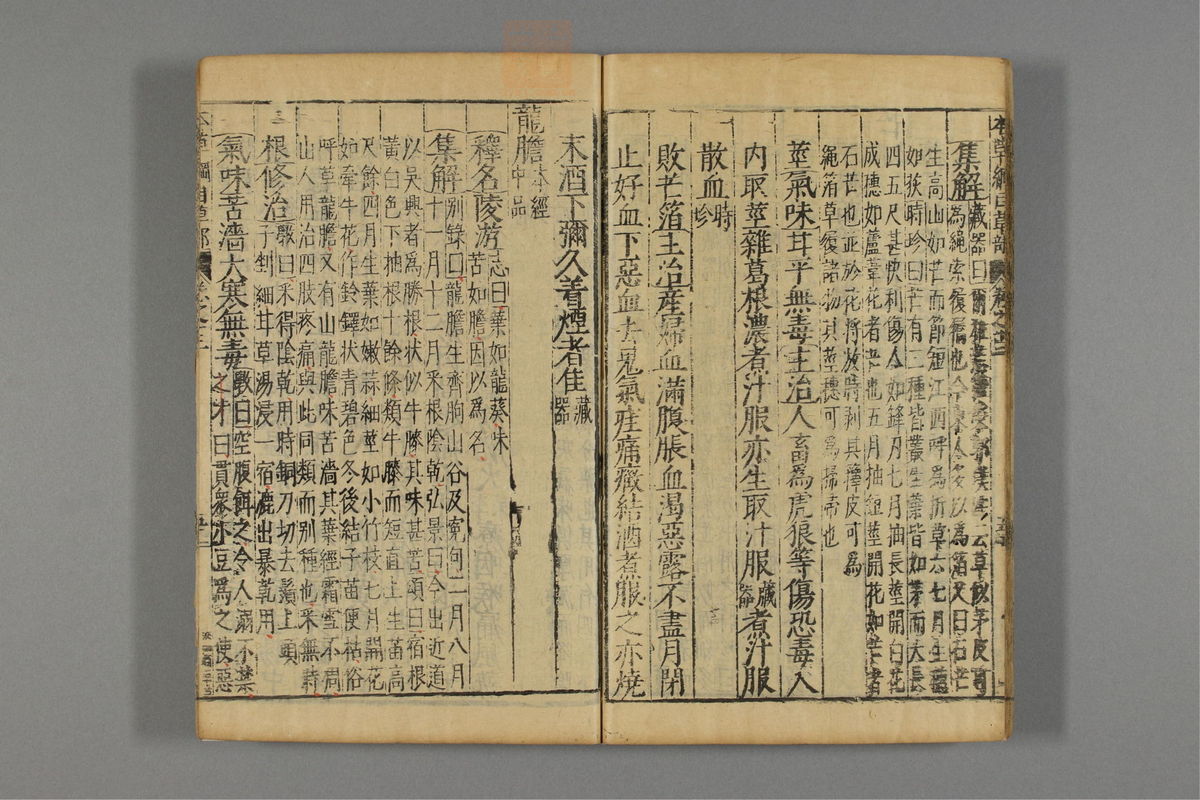 集解藏器曰爾雅
為繩索履屩也今東人多以為箔又曰石芒
生高山如芒而節短江西呼為折草六七月生穗
如荻時珍曰芒有二種皆叢生葉皆如茅而大長
四五尺甚快利傷人如鋒刃七月抽長莖開白花
成穗如蘆葦花者芒也五月抽短莖開花如芒者
石芒也並於花將放時剥其籜皮可為
繩箔草履諸物其莖穗可為掃帚也
莖氣味甘平無毒主治人畜為虎狼等傷恐毒入
内取莖雜葛根濃煮汁服亦生取汁服藏器煮汁服
散血時珍
敗芒箔主治産婦血滿腹脹血渴惡露不盡月閉
止好血下惡血去鬼氣疰痛癥結酒煮服之亦燒
末酒下彌久着煙者佳藏器
龍膽本經中品
釋名陵游志曰葉如龍葵味苦如膽因以為名
集解别錄曰龍膽生齊朐山谷及寃句二月八月
十一月十二月采根陰乾弘景曰今出近道
以吳興者為勝根狀似牛膝其味甚苦頌曰宿根
黄白色下抽根十餘條類牛膝而短直上生苗高
尺餘四月生葉如嫩蒜細莖如小竹枝七月開花
如牽牛花作鈴鐸狀青碧色冬後結子苗便枯俗
呼草龍膽又有山龍膽味苦濇其葉經霜雪不凋
山人用治四肢疼痛與此同類而别種也采無時
根修治斆曰采得陰乾用時銅刀切去鬚上頭
子剉細甘草湯浸一宿漉出暴乾用
氣味苦濇大寒無毒斆曰空腹餌之令人溺不禁
之才曰貫衆小豆為之使惡
本草綱目草部